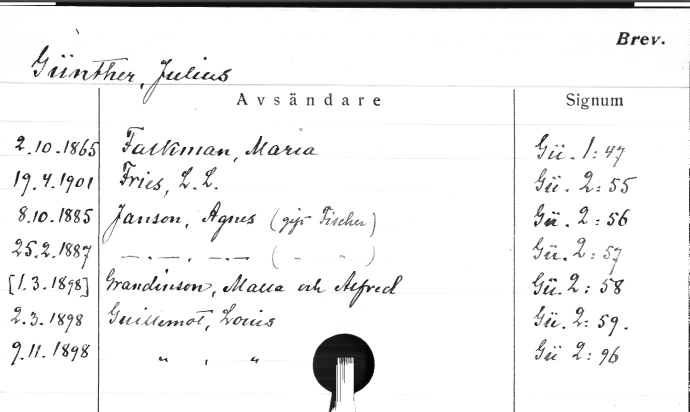 Brev.
Günther, Julius
Avsändare Signum
2.10.1865 Falkman, Maria Gü. 1:47
19.4.1901 Fries, L. L. Gü. 2:55
8.10.1885 Janson, Agnes (gift Fischer) Gü. 2:56
25.2.1887 —.—, —.— ( " " ) Gü. 2:57
[1.3.1898] Grandinson, Malla och Alfred Gü. 2:58
2.3.1898 Guillemot, Louis Gü. 2:59.
9.11.1898 " , " Gü 2:96